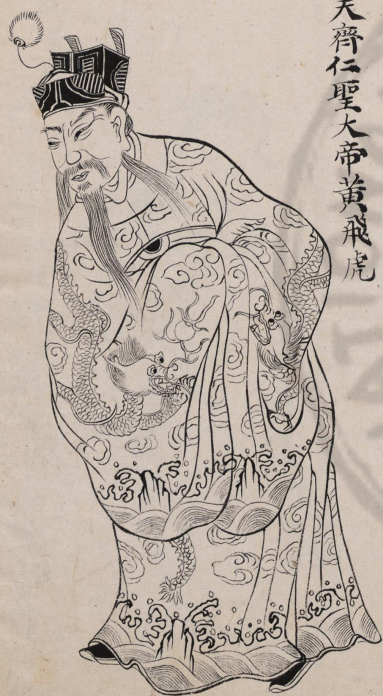 天齊仁聖大帝黃飛虎